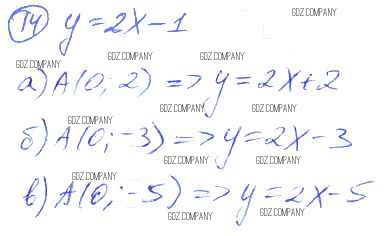 T4 y = 2x - 1
GDZ.COMPANY
GDZ.COMPANY GDZ.COMPANY
GDZ.COMPANY
а) A(0; 2) => y = 2x + 2
GDZ.COMPANY GDZ.COMPANY
GDZ.COMPANY
б) A(0; -3) => y = 2x - 3
GDZ.COMPANY GDZ.COMPANY
GDZ.COMPANY
в) A(0; -5) => y = 2x - 5
GDZ.COMPANY GDZ.COMPANY